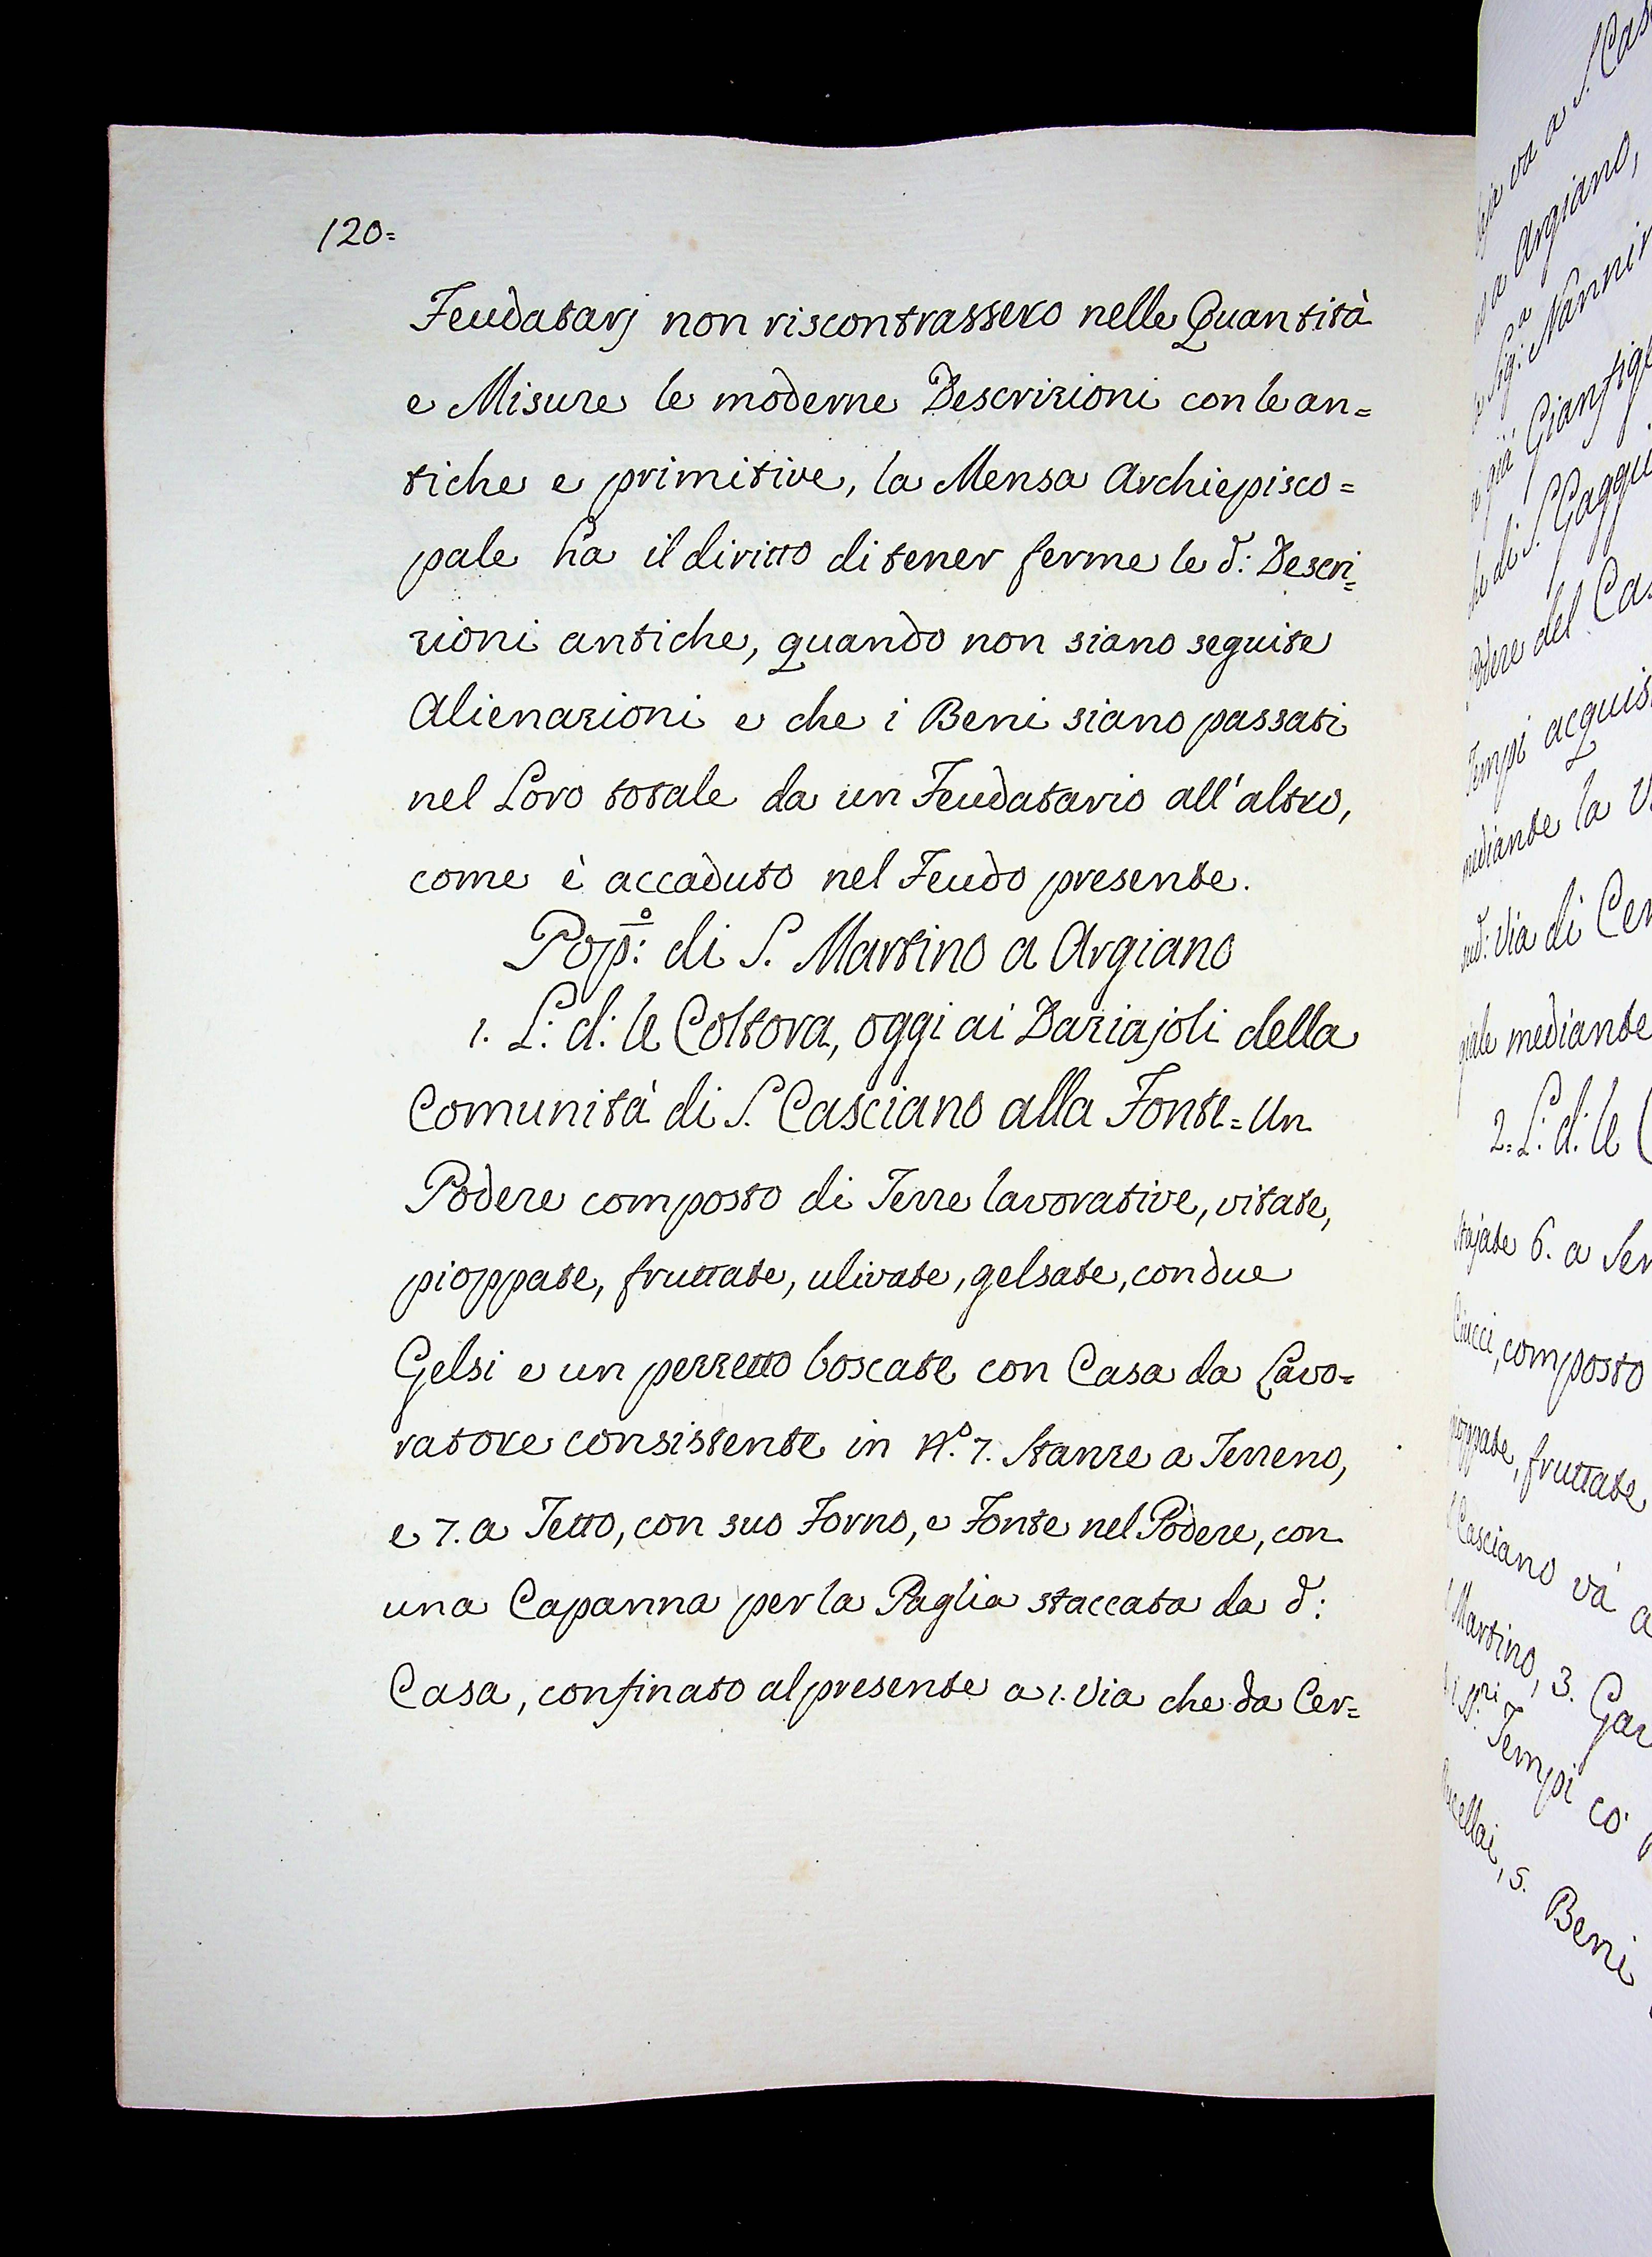 120=
Feudatarj non riscontrassero nelle Quantità
e Misure le moderne Descrizioni con le an=
tiche e primitive, la Mensa Archiepisco=
pale ha il diritto di tener ferme le d: Descri=
zioni antiche, quando non siano seguite
Alienazioni e che i Beni siano passati
nel Loro totale da un Feudatario all'altro,
come è accaduto nel Feudo presente.
Pop:º di S. Martino a Argiano
1. L: d: le Coltora, oggi ai Daziajoli della
Comunità di S. Casciano alla Fonte=Un
Podere composto di Terre lavorative, vitate,
pioppate, fruttate, ulivate, gelsate, con due
Gelsi e un pezzetto boscate con Casa da Lavo=
ratore consistente in N.º 7. Stanze a Terreno,
e 7. a Tetto, con suo Forno, e Fonte nel Podere, con
una Capanna per la Paglia staccata da d:
Casa, confinato al presente a 1. Via che da Cer=
va a S.
a Argiano,
già
di S.
del
acquis
mediante la
Via di Cer
mediante
2. L: d: le
6. a Ser
Ciucci, composto
pioppate, fruttate
Casciano và a
Martino, 3.
Tempi co'
5. Beni